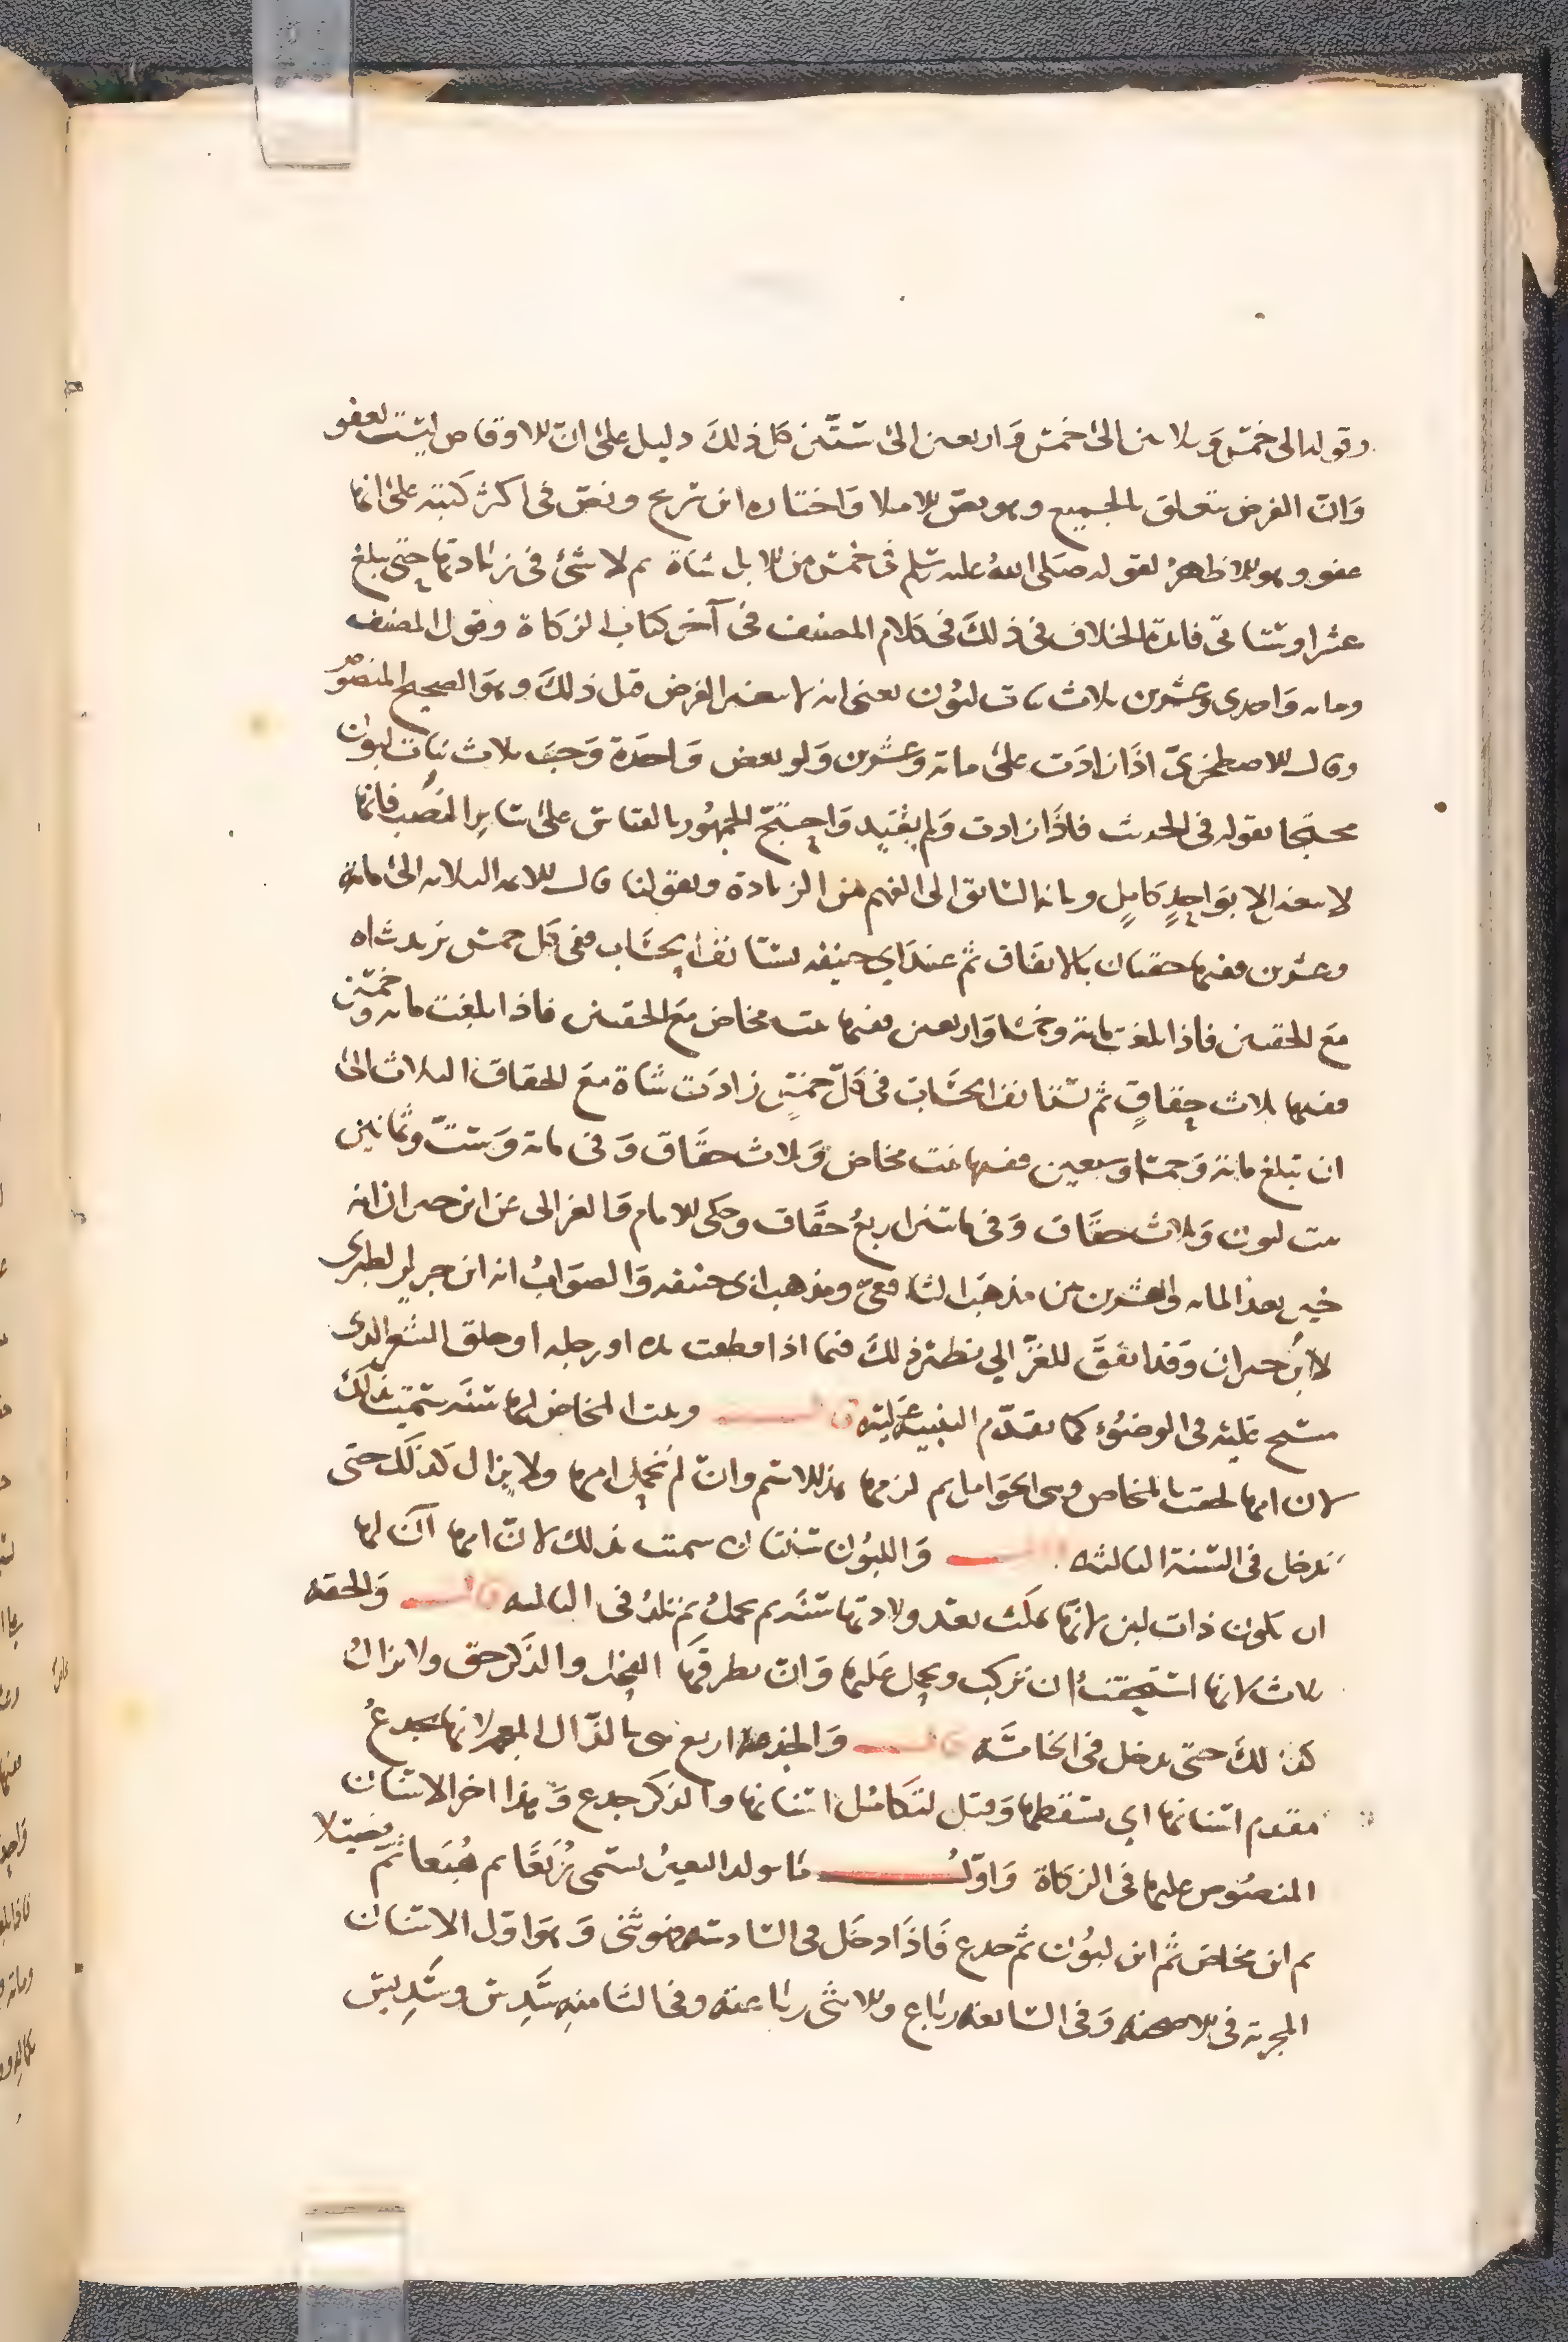 وقوله الى خمس وثلاثين الى خمس واربعين الى ستين كل ذلك دليل على ان الاوقاص ليست بعفو
وان الفرض يتعلق بالجميع وهو نص الاملا واختاره ابن سريج ونص في اكثر كتبه على انها
عفو وهو الاظهر لقوله صلى الله عليه وسلم في خمس من الابل شاة ثم لا شئ في زيادتها حتى تبلغ
عشرا وستاتي فائدة الخلاف في ذلك في كلام المصنف في آخر كتاب الزكاة وقول المصنف
ومائه واحدى وعشرين ثلاث بنات لبون يعني انه لا يتغير الفرض قبل ذلك وهو الصحيح المنصوص
وقال الاصطخري اذا زادت على مائة وعشرين ولو بعض واحدة وجب ثلاث بنات لبون
محتجا بقوله في الحديث فاذا زادت ولم يقيد واحتج الجمهور بالقياس على سائر النصب فانها
لا تتغير الا بواحد كامل وبانه السابق الى الفهم من الزيادة وبقولنا قال الائمة الثلاثه الى مائة
وعشرين ففيها حقتان بالاتفاق ثم عند ابي حنيفه يستانف الحساب ففي كل خمس تزيد شاه
مع الحقتين فاذا بلغت مائة وخمسا واربعين ففيها بنت مخاض مع الحقتين فاذا بلغت مائه وخمسين
ففيها ثلاث حقاق ثم تستانف الحساب في كل خمس زادت شاة مع الحقاق الثلاث الى
ان تبلغ مائة وخمسا وسبعين ففيها بنت مخاض وثلاث حقاق وفي مائة وست وثمانين
بنت لبون وثلاث حقاق وفي مائتين اربع حقاق وحكى الامام والغزالي عن ابن خيران انه
خير بعد المائه والعشرين بين مذهب الشافعي ومذهب ابي حنيفه والصواب انه ابن جرير الطبري
لا ابن خيران وقد اتفق للغزالي نظير ذلك فيما اذا قطعت يده او رجله او حلق الشعر الذي
مسح عليه في الوضوء كما تقدم التنبيه عليه قال وبنت المخاض لها سنه سميت بذلك
لان امها لحقت بالمخاض وهي الحوامل ثم لزمها هذا الاسم وان لم تحمل امها ولا يزال كذلك حتى
تدخل في السنة الثالثه قال واللبون سنتان سميت بذلك لان امها آن لها
ان تكون ذات لبن لانها تمكث بعد ولادتها سنه ثم تحمل ثم تلد في الثالثه قال والحقه
ثلاث لانها استحقت ان تركب ويحمل عليها وان يطرقها الفحل والذكر حق ولا يزال
كذلك حتى يدخل في الخامسه قال والجذعة اربع هي بالذال المعجمه لانها تجذع
مقدم اسنانها اي تسقطها وقيل لتكامل اسنانها والذكر جذع وهذا اخر الاسنان
المنصوص عليها في الزكاة واول ما يولد البعير يسمى رُبَعًا ثم هُبَعا ثم فصيلا
ثم ابن مخاض ثم ابن لبون ثم جذع فاذا دخل في السادسه فهو ثني وهو اول الاسنان
المجزئة في الاضحيه وفي السابعه رباع والانثى رباعيه وفي الثامنه سَدِس وسَدِيس